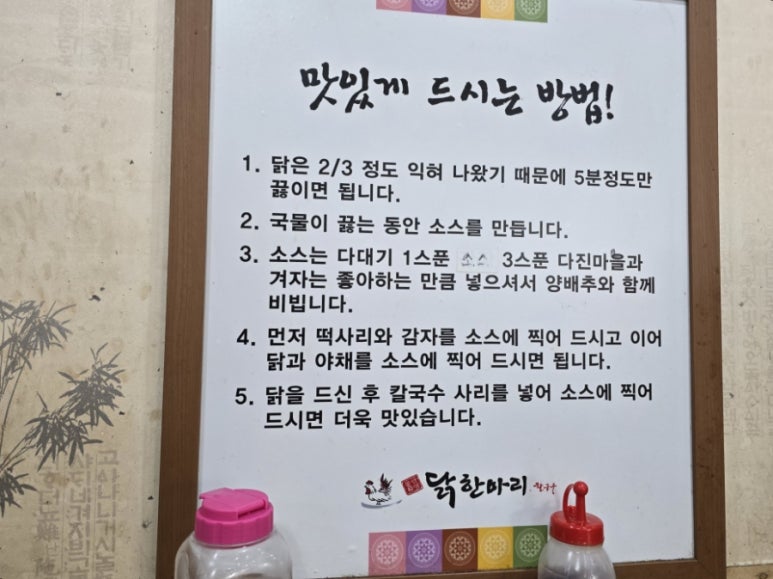 맛있게 드시는 방법!
1. 닭은 2/3 정도 익혀 나왔기 때문에 5분정도만
끓이면 됩니다.
2. 국물이 끓는 동안 소스를 만듭니다.
3. 소스는 다대기 1스푼 소스 3스푼 다진마을과
겨자는 좋아하는 만큼 넣으셔서 양배추와 함께
비빕니다.
4. 먼저 떡사리와 감자를 소스에 찍어 드시고 이어
닭과 야채를 소스에 찍어 드시면 됩니다.
5. 닭을 드신 후 칼국수 사리를 넣어 소스에 찍어
드시면 더욱 맛있습니다.
닭한마리